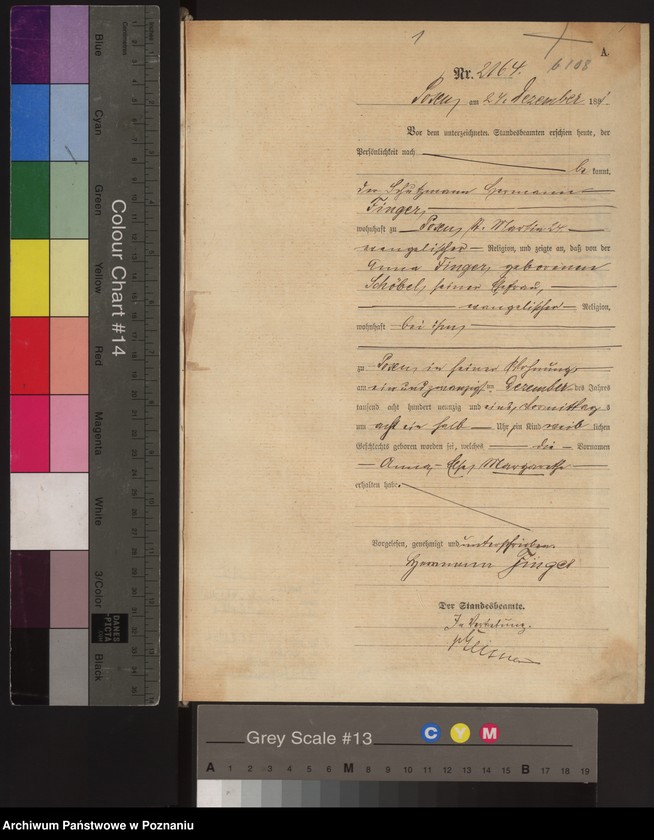 1
A.
Nr. 2164.
6108
Posen, am 24. Dezember 1891.
Vor dem unterzeichneten Standesbeamten erschien heute, der
Persönlichkeit nach
be kannt,
der Schutzmann Hermann
Finger,
wohnhaft zu Posen, St. Martin
evangelischer Religion, und zeigte an, daß von der
Anna Finger, geborenen
Schöbel, seiner Ehefrau,
evangelischer Religion,
wohnhaft bei ihm,
zu Posen in seiner Wohnung
am ein und zwanzigsten Dezember des Jahres
tausend acht hundert neunzig und eins, Vormittags
um acht ein halb Uhr ein Kind weib lichen
Geschlechts geboren worden sei, welches die Vornamen
Anna, Else, Margarethe
erhalten habe.
Vorgelesen, genehmigt und unterschrieben.
Hermann Finger
Der Standesbeamte.
In Vertretung.
Colour Chart #14
Blue
Cyan
Green
Yellow
Red
Magenta
White
3/Color
Black
Centimetres
Inches
DANES
PICTA
Grey Scale #13
C Y M
A 1 2 3 4 5 6 M 8 9 10 11 12 13 14 15 B 17 18 19
Archiwum Państwowe w Poznaniu